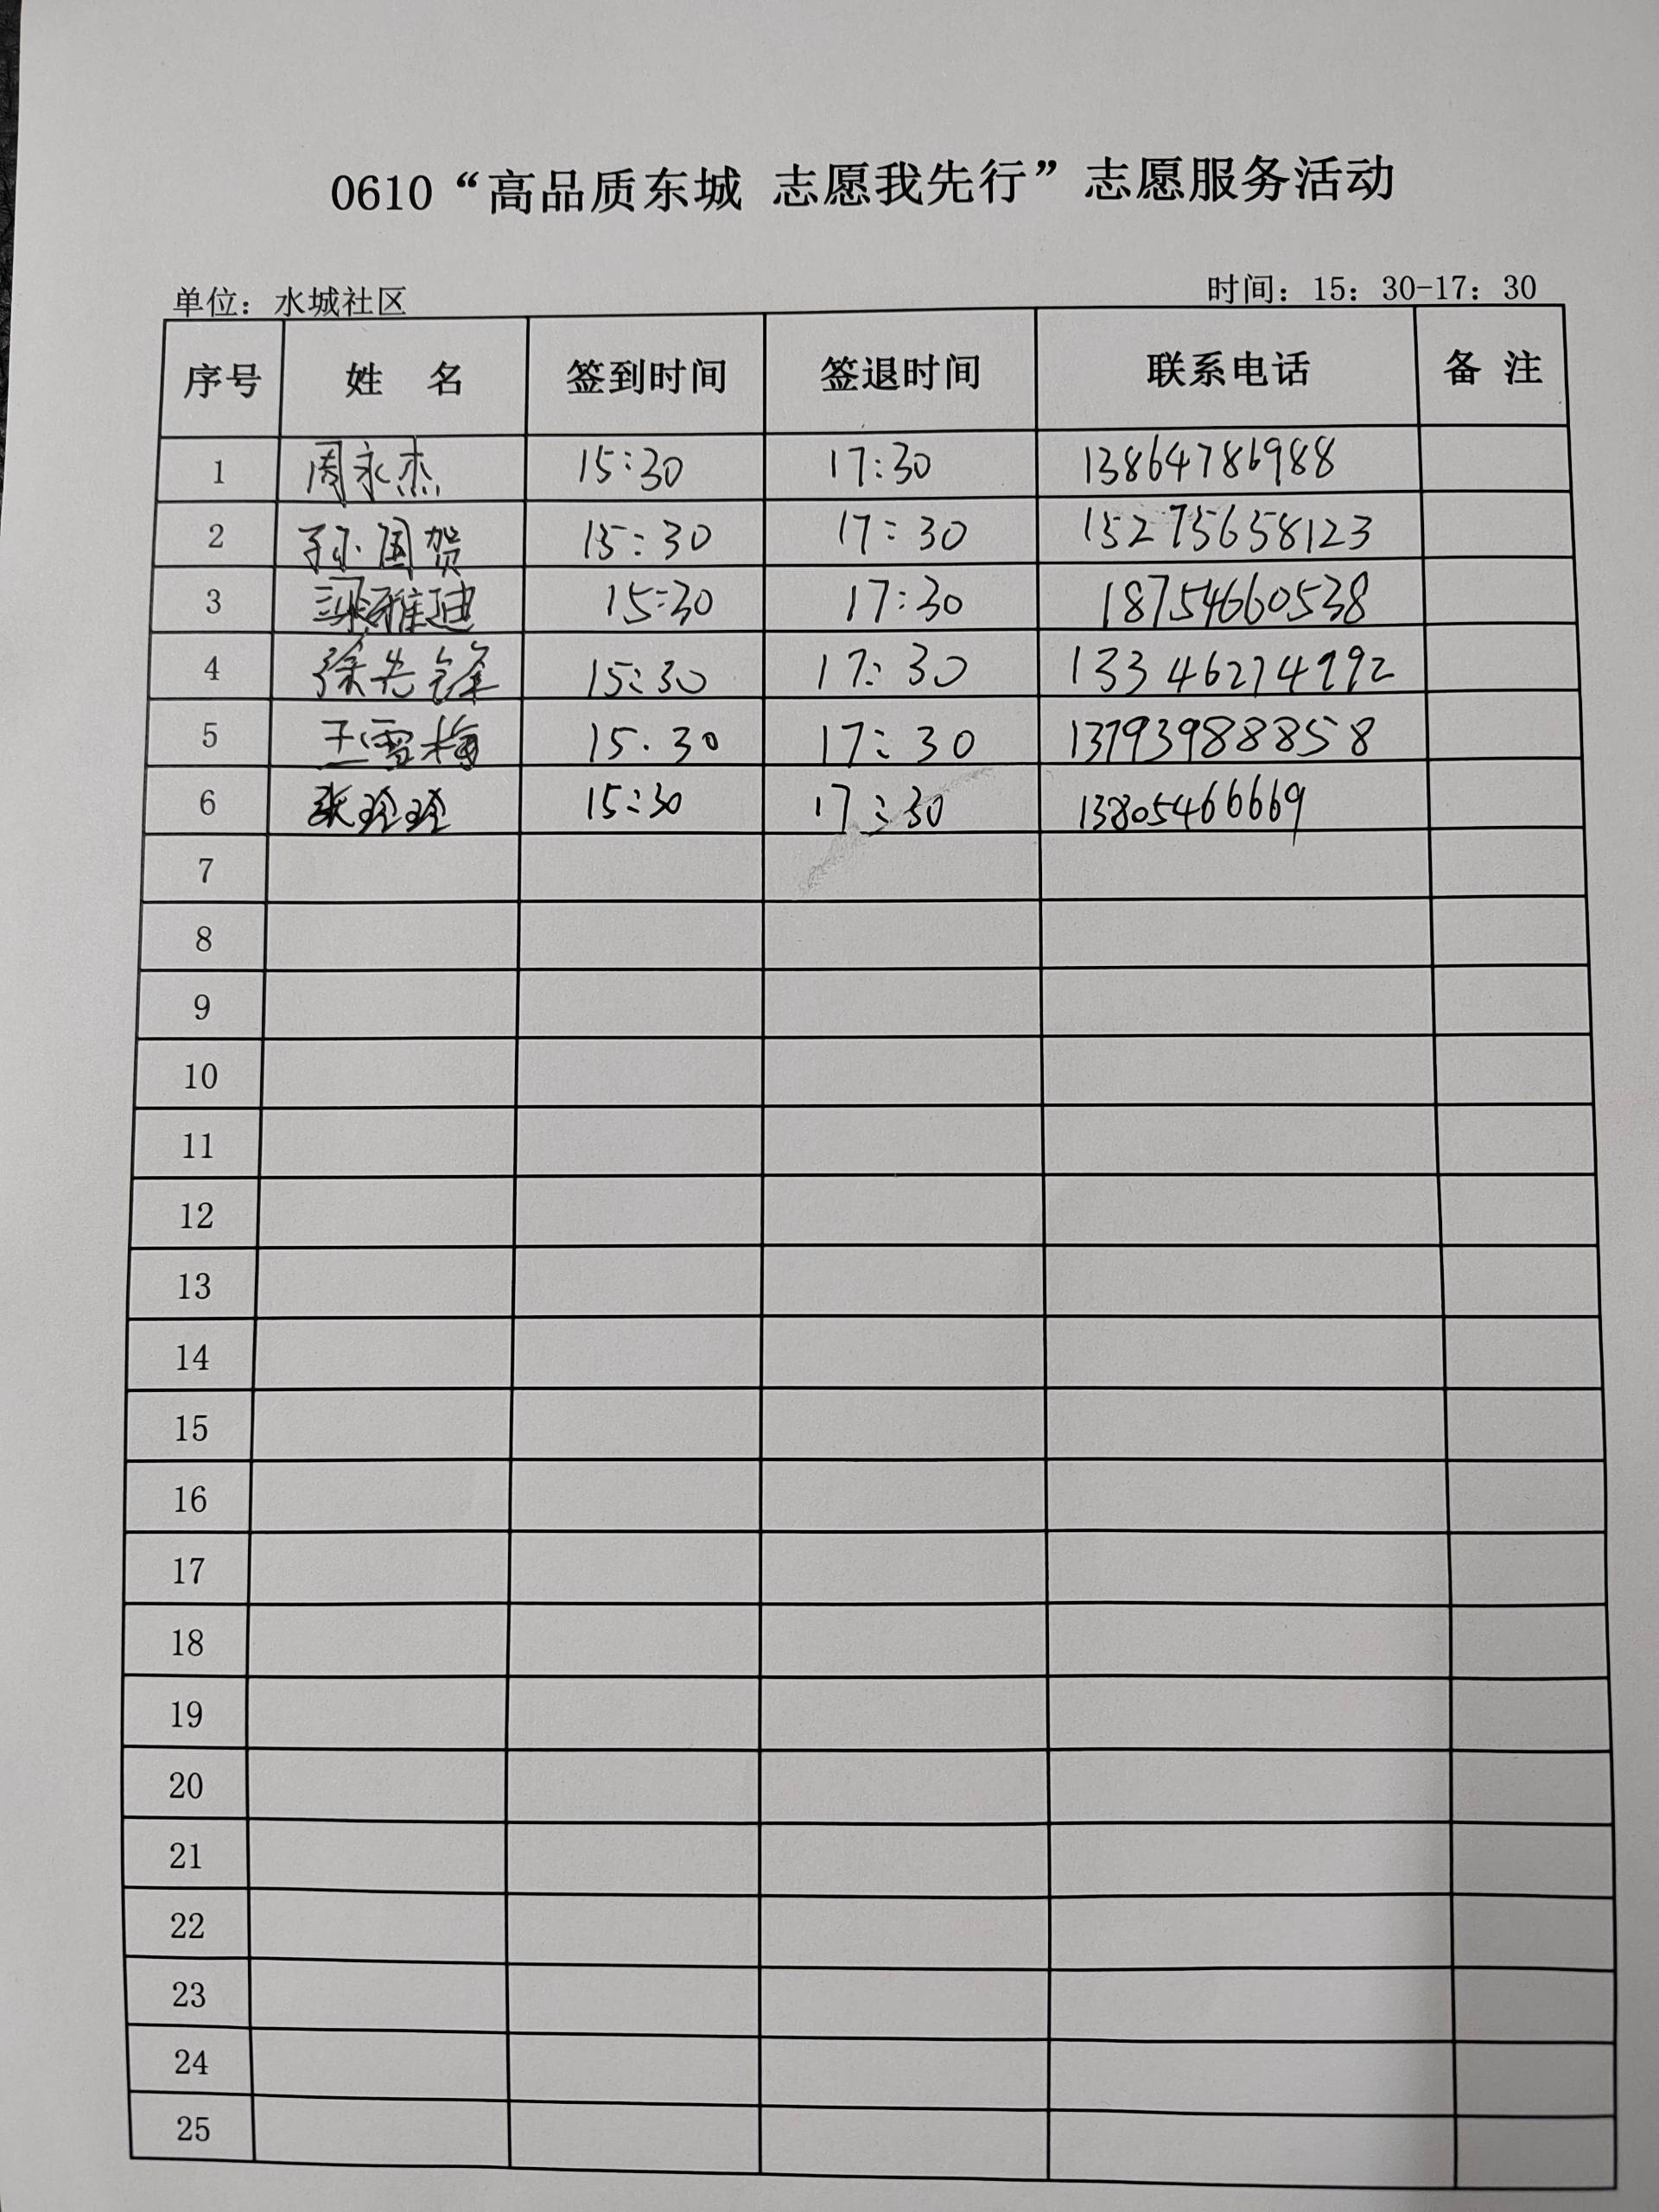 0610“高品质东城 志愿我先行”志愿服务活动
单位：水城社区 时间：15：30-17：30
序号 姓 名 签到时间 签退时间 联系电话 备 注
1 周永杰 15:30 17:30 13864786988
2 孙国贺 15:30 17:30 15275658123
3 梁雅迪 15:30 17:30 18754660538
4 徐先锋 15:30 17:30 13346274992
5 王雪梅 15.30 17:30 13793988858
6 张玲玲 15:30 17:30 13805466669
7
8
9
10
11
12
13
14
15
16
17
18
19
20
21
22
23
24
25